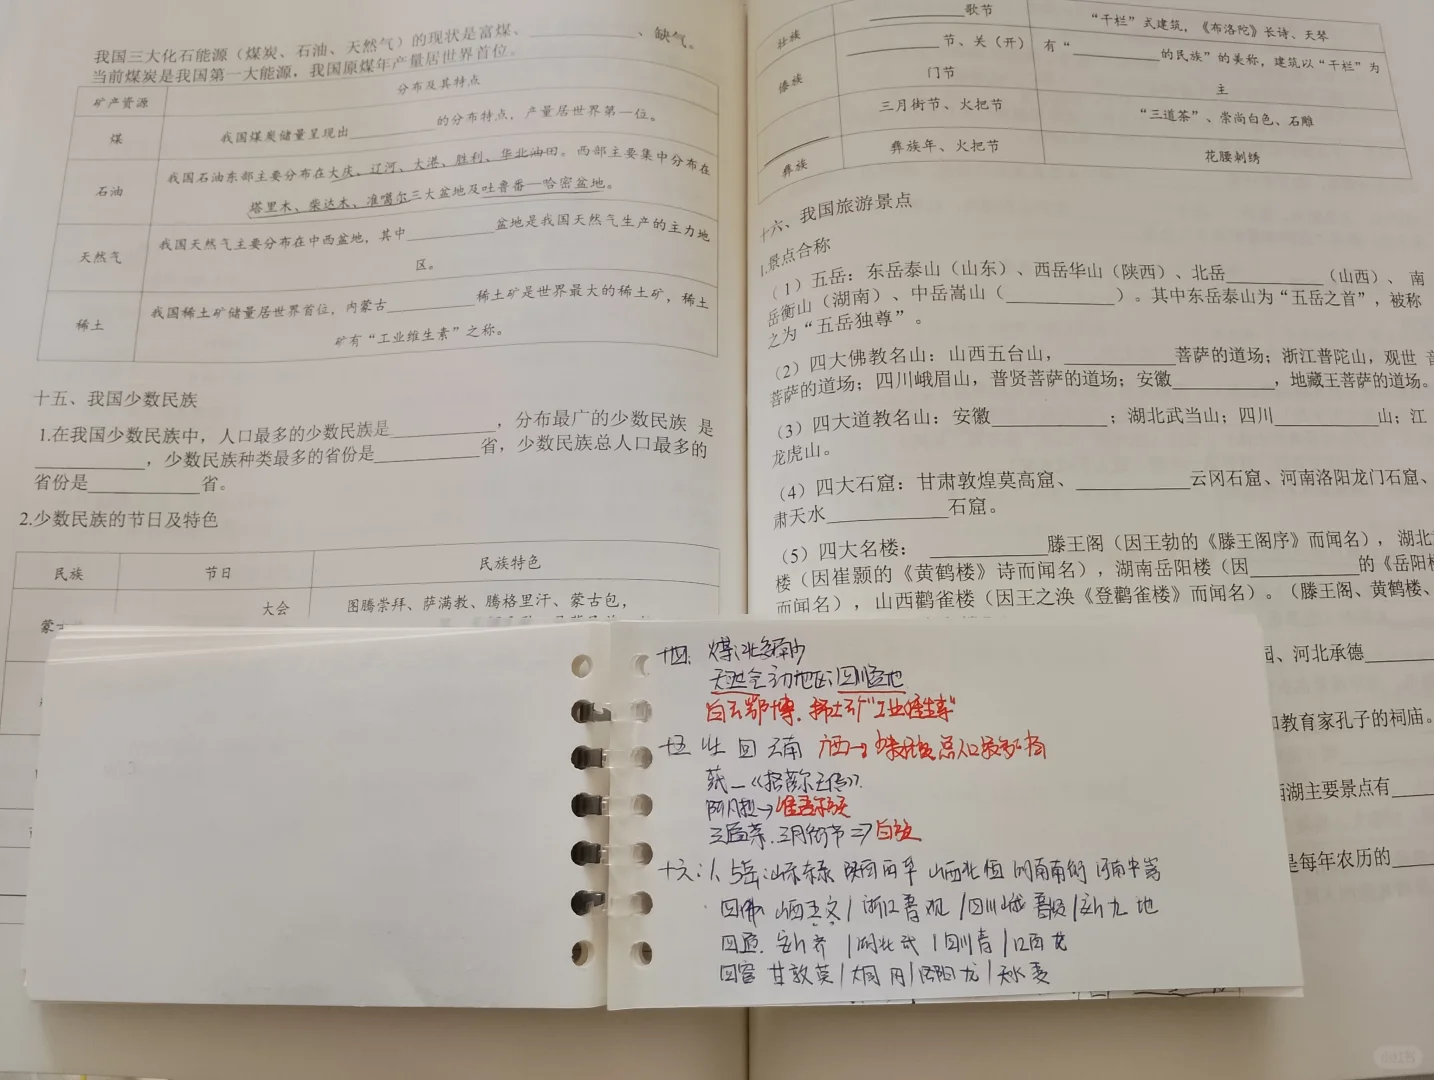 我国三大化石能源（煤炭、石油、天然气）的现状是富煤、__________、缺气。
当前煤炭是我国第一大能源，我国原煤年产量居世界首位。
矿产资源 分布及其特点
煤 我国煤炭储量呈现出__________的分布特点，产量居世界第一位。
石油 我国石油东部主要分布在大庆、辽河、大港、胜利、华北油田。西部主要集中分布在
塔里木、柴达木、准噶尔三大盆地及吐鲁番—哈密盆地。
天然气 我国天然气主要分布在中西盆地，其中__________盆地是我国天然气生产的主力地
区。
稀土 我国稀土矿储量居世界首位，内蒙古__________稀土矿是世界最大的稀土矿，稀土
矿有“工业维生素”之称。
十五、我国少数民族
1.在我国少数民族中，人口最多的少数民族是__________，分布最广的少数民族 是
__________，少数民族种类最多的省份是__________省，少数民族总人口最多的
省份是__________省。
2.少数民族的节日及特色
民族 节日 民族特色
大会 图腾崇拜、萨满教、腾格里汗、蒙古包，
蒙
壮族 __________歌节 “干栏”式建筑，《布洛陀》长诗、天琴
傣族 __________节、关（开）
门节 有“__________的民族”的美称，建筑以“干栏”为
主
__________ 三月街节、火把节 “三道茶”、崇尚白色、石雕
彝族 彝族年、火把节 花腰刺绣
十六、我国旅游景点
1.景点合称
（1）五岳：东岳泰山（山东）、西岳华山（陕西）、北岳__________（山西）、 南
岳衡山（湖南）、中岳嵩山（__________）。其中东岳泰山为“五岳之首”，被称
之为“五岳独尊”。
（2）四大佛教名山：山西五台山，__________菩萨的道场；浙江普陀山，观世 音
菩萨的道场；四川峨眉山，普贤菩萨的道场；安徽__________，地藏王菩萨的道场。
（3）四大道教名山：安徽__________；湖北武当山；四川__________山；江
龙虎山。
（4）四大石窟：甘肃敦煌莫高窟、__________云冈石窟、河南洛阳龙门石窟、
肃天水__________石窟。
（5）四大名楼： __________滕王阁（因王勃的《滕王阁序》而闻名），湖北
楼（因崔颢的《黄鹤楼》诗而闻名），湖南岳阳楼（因__________的《岳阳楼
而闻名），山西鹳雀楼（因王之涣《登鹳雀楼》而闻名）。（滕王阁、黄鹤楼、
园、河北承德
和教育家孔子的祠庙。
西湖主要景点有
是每年农历的
十四：煤：北多南少
天然气主力地区：四川盆地
白云鄂博. 稀土矿“工业维生素”
十五 壮 回 云南 广西→少数民族总人口最多省份
藏—《格萨尔王传》.
阿凡提→维吾尔族
三道茶、三月街节⇒白族
十六：1、5岳：山东东泰 陕西西华 山西北恒 湖南南衡 河南中嵩
四佛 山西五文/浙江普观/四川峨普贤/安九地
四道. 安齐/湖北武/四川青/江西龙
四窟 甘敦莫/大同云冈/洛阳龙/天水麦